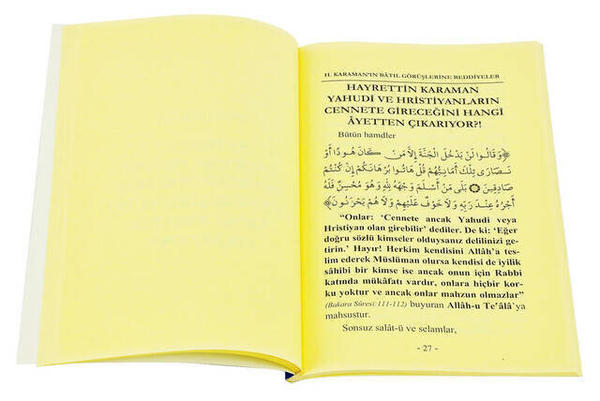 H. KARAMAN'IN BÂTIL GÖRÜŞLERİNE REDDİYELER
HAYRETTİN KARAMAN
YAHUDİ VE HRİSTİYANLARIN
CENNETE GİRECEĞİNİ HANGİ
ÂYETTEN ÇIKARIYOR?!
Bütün hamdler
﴿وَقَالُوا لَنْ يَدْخُلَ الْجَنَّةَ إِلَّا مَنْ كَانَ هُودًا أَوْ
نَصَارَى تِلْكَ أَمَانِيُّهُمْ قُلْ هَاتُوا بُرْهَانَكُمْ إِنْ كُنْتُمْ
صَادِقِينَ ۞ بَلَى مَنْ أَسْلَمَ وَجْهَهُ لِلّٰهِ وَهُوَ مُحْسِنٌ فَلَهُ
أَجْرُهُ عِنْدَ رَبِّهِ وَلَا خَوْفٌ عَلَيْهِمْ وَلَا هُمْ يَحْزَنُونَ﴾
“Onlar: ‘Cennete ancak Yahudi veya
Hristiyan olan girebilir’ dediler. De ki: ‘Eğer
doğru sözlü kimseler olduysanız delilinizi ge-
tirin.’ Hayır! Herkim kendisini Allâh'a tes-
lim ederek Müslüman olursa kendisi de iyilik
sâhibi bir kimse ise ancak onun için Rabbi
katında mükâfatı vardır, onlara hiçbir kor-
ku yoktur ve ancak onlar mahzun olmazlar”
(Bakara Sûresi:111-112) buyuran Allâh-u Te'âlâ'ya
mahsustur.
Sonsuz salât-ü ve selamlar,
- 27 -